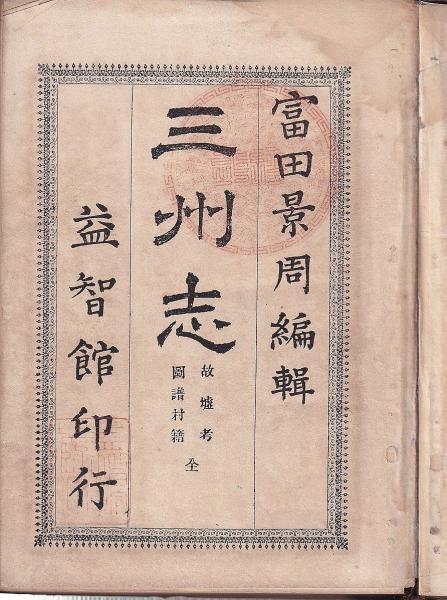 富田景周編輯
三州志
故墟考 全
圖譜村籍
益智館印行